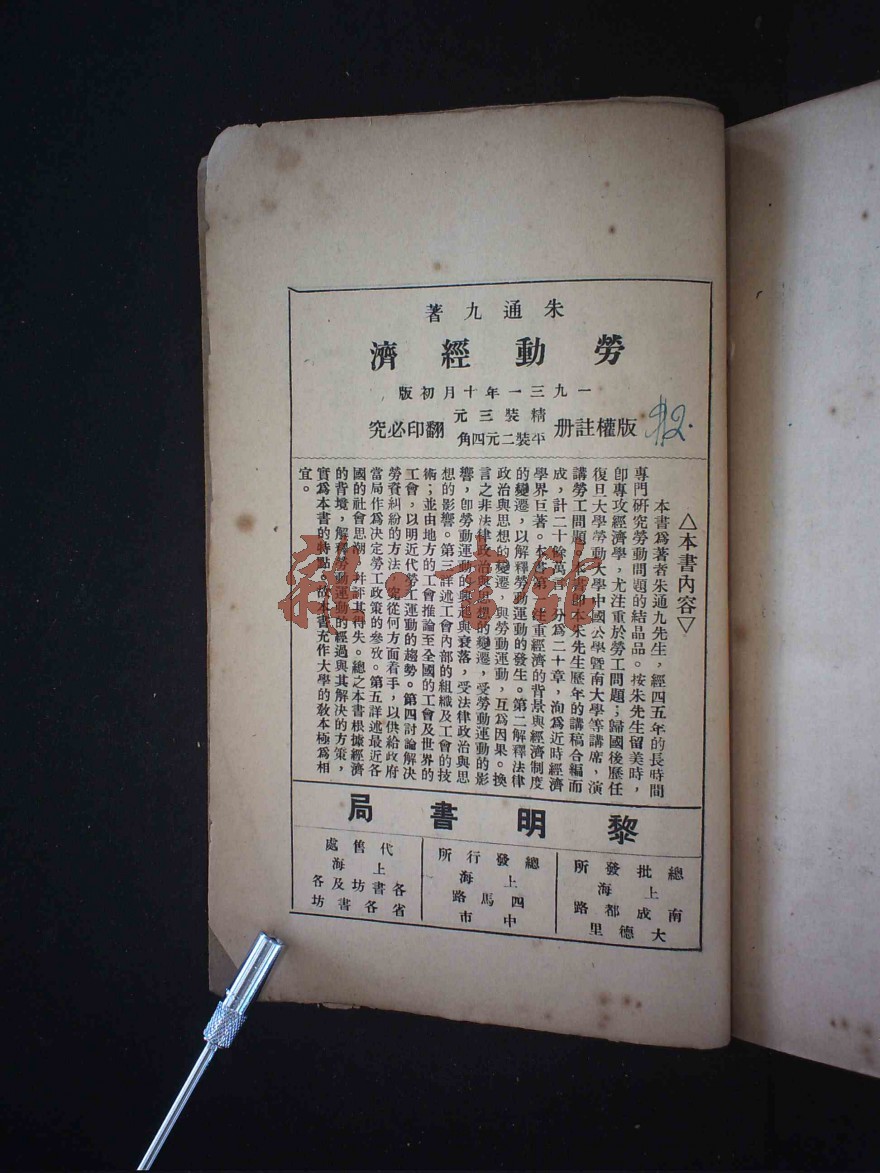 朱通九著
勞動經濟
一九三一年十月初版
版權註册
精裝三元
平裝二元四角
翻印必究
$2.
△本書內容▽
本書爲著者朱通九先生，經四五年的長時間
專門硏究勞動問題的結晶品。按朱先生留美時，
卽專攻經濟學，尤注重於勞工問題；歸國後歷任
復旦大學勞動大學中國公學曁南大學等講席，演
講勞工問題，本書卽本朱先生歷年的講稿合編而
成，計二十餘萬言，分爲二十章，洵爲近時經濟
學界巨著。本書第一注重經濟的背景與經濟制度
的變遷，以解釋勞動運動的發生。第二解釋法律
政治與思想的變遷，與勞動運動，互爲因果。換
言之非法律政治與思想的變遷，受勞動運動的影
響，卽勞動運動的興起與衰落，受法律政治與思
想的影響。第三詳述工會內部的組織及工會的技
術；並由地方的工會推論至全國的工會及世界的
工會，以明近代勞工運動的趨勢。第四討論解決
勞資糾紛的方法，究從何方面着手，以供給政府
當局作爲決定勞工政策的參攷。第五詳述最近各
國的社會思潮，並評其得失。總之本書根據經濟
的背境，解釋勞動運動的經過與其解決的方策，
實爲本書的特點，故本書充作大學的敎本極爲相
宜。
黎明書局
總批發所
上海
南成都路
大德里
總發行所
上海
四馬路
中市
代售處
上海
各書坊及各
省各書坊
雜·书馆